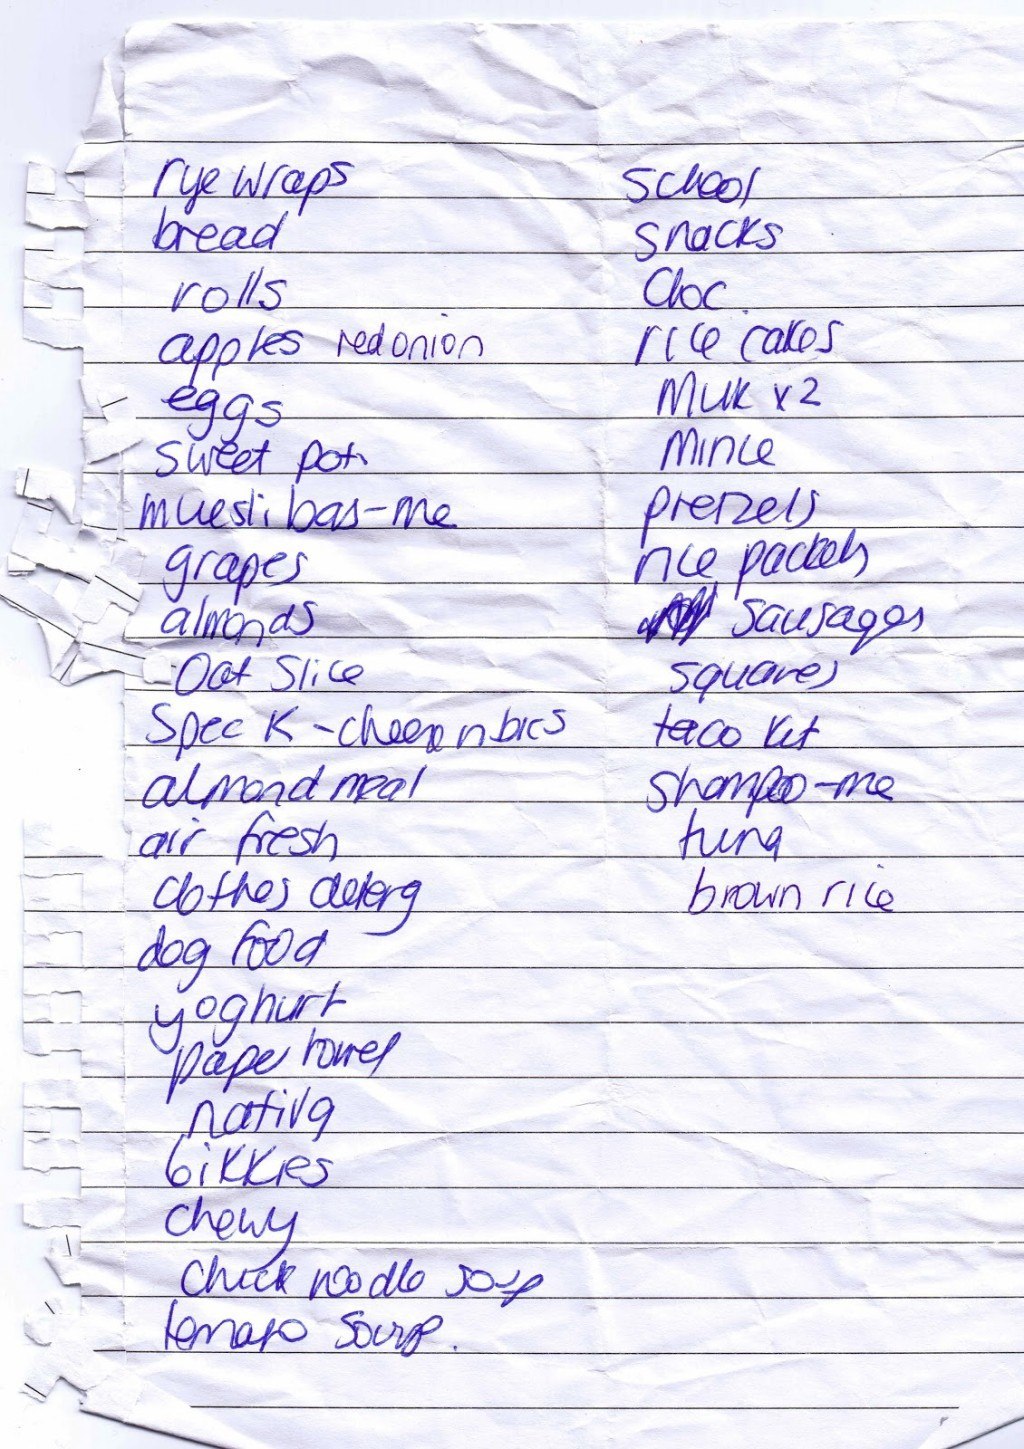 rye wraps
bread
rolls
apples red onion
eggs
sweet pot
muesli bas-me
grapes
almonds
Oat Slice
Spec K - cheese n bics
almond meal
air fresh
clothes deterg
dog food
yoghurt
paper towel
nativa
bikkies
chewy
chick noodle soup
tomato soup.
school
snacks
Choc
rice cakes
Milk x2
mince
pretzels
rice packets
sausages
squares
taco kit
shampoo-me
tuna
brown rice